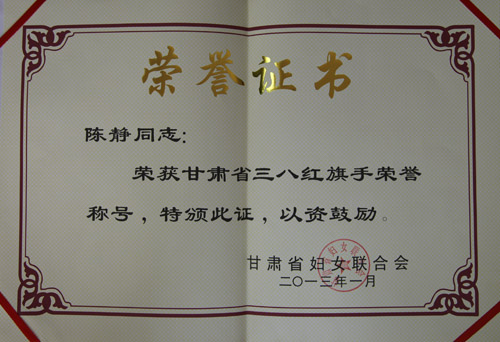 荣誉证书
陈静同志：
荣获甘肃省三八红旗手荣誉
称号，特颁此证，以资鼓励。
甘肃省妇女联合会
二〇一三年一月